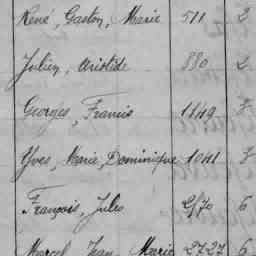 René, Gaston, Marie 511 2
Julien, Aristide 880 2
Georges, Francis 1149 7
Yves, Marie, Dominique 1041 7
François, Jules 2170 6
Marcel, Jean, Marie 2727 6